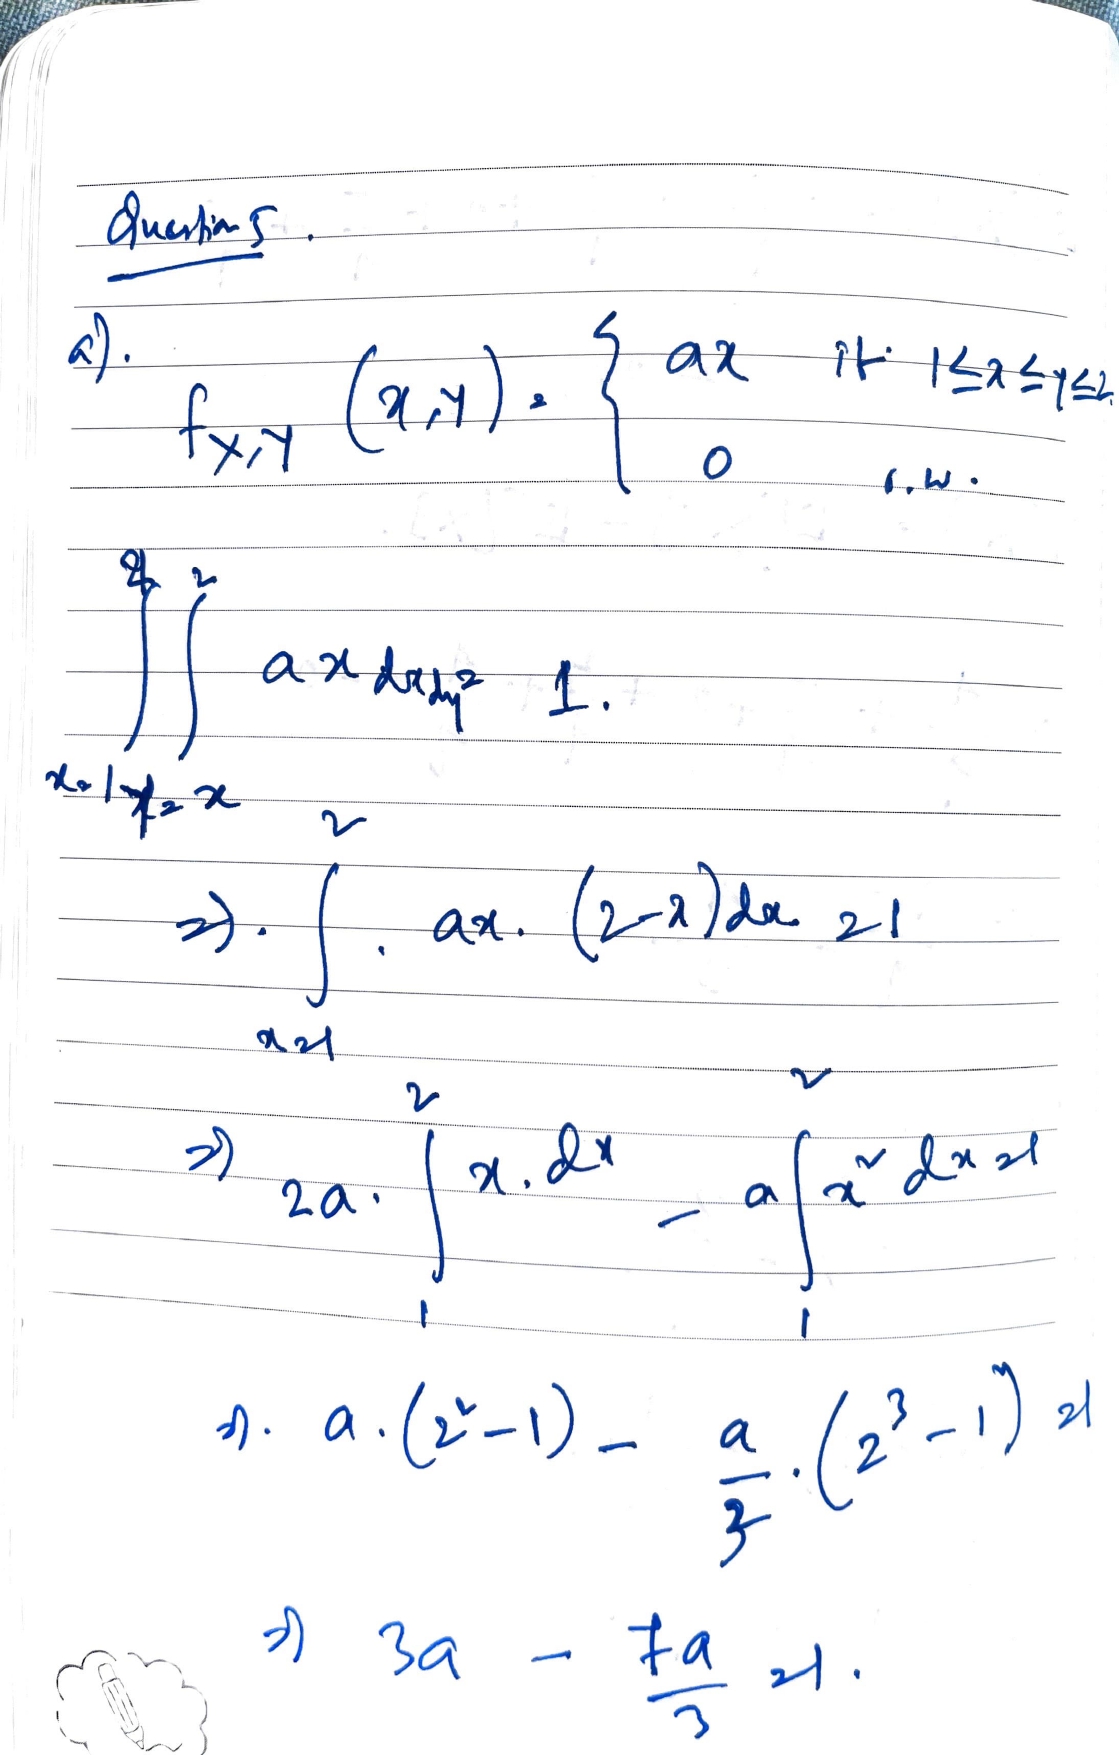 Question 5.
a). f_{X,Y} (x,y) = { ax if 1≤x≤y≤2
0 o.w.
∫_{x=1}^{2} ∫_{y=x}^{2} ax dx dy = 1.
⇒). ∫_{x=1}^{2} ax. (2-x) dx = 1
⇒) 2a. ∫_{1}^{2} x. dx - a ∫_{1}^{2} x² dx = 1
⇒). a. (2²-1) - a/3 . (2³-1) = 1
⇒) 3a - 7a/3 = 1.